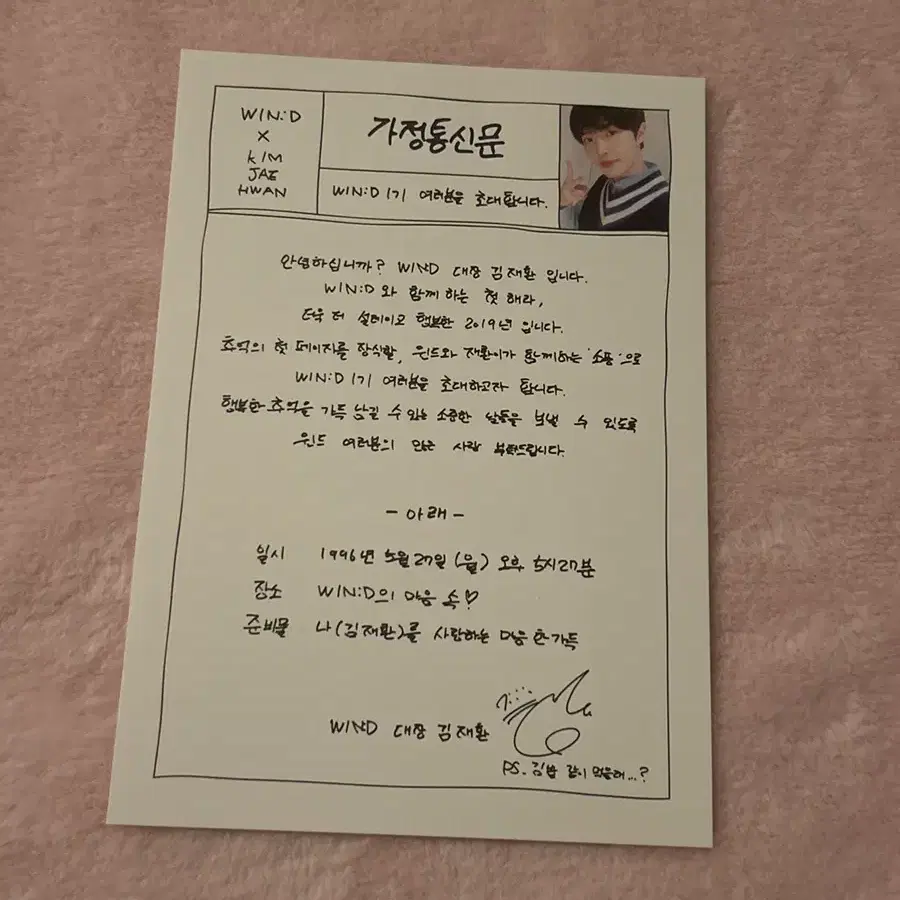 WIN:D
X
KIM
JAE
HWAN
가정통신문
WIN:D 1기 여러분을 초대합니다.
안녕하십니까? WIND 대장 김재환 입니다.
WIN:D와 함께 하는 첫 해라,
더욱 더 설레이고 행복한 2019년 입니다.
추억의 첫 페이지를 장식할, 윈드와 재환이가 함께하는 '소풍'으로
WIN:D 1기 여러분을 초대하고자 합니다.
행복한 추억을 가득 남길 수 있는 소중한 날들을 보낼 수 있도록
윈드 여러분의 많은 사랑 부탁드립니다.
- 아래 -
일시 1996년 5월 27일 (월) 오후 5시27분
장소 WIN:D의 마음 속♡
준비물 나(김재환)를 사랑하는 마음 한가득
WIND 대장 김재환
PS. 김밥 같이 먹을래...?